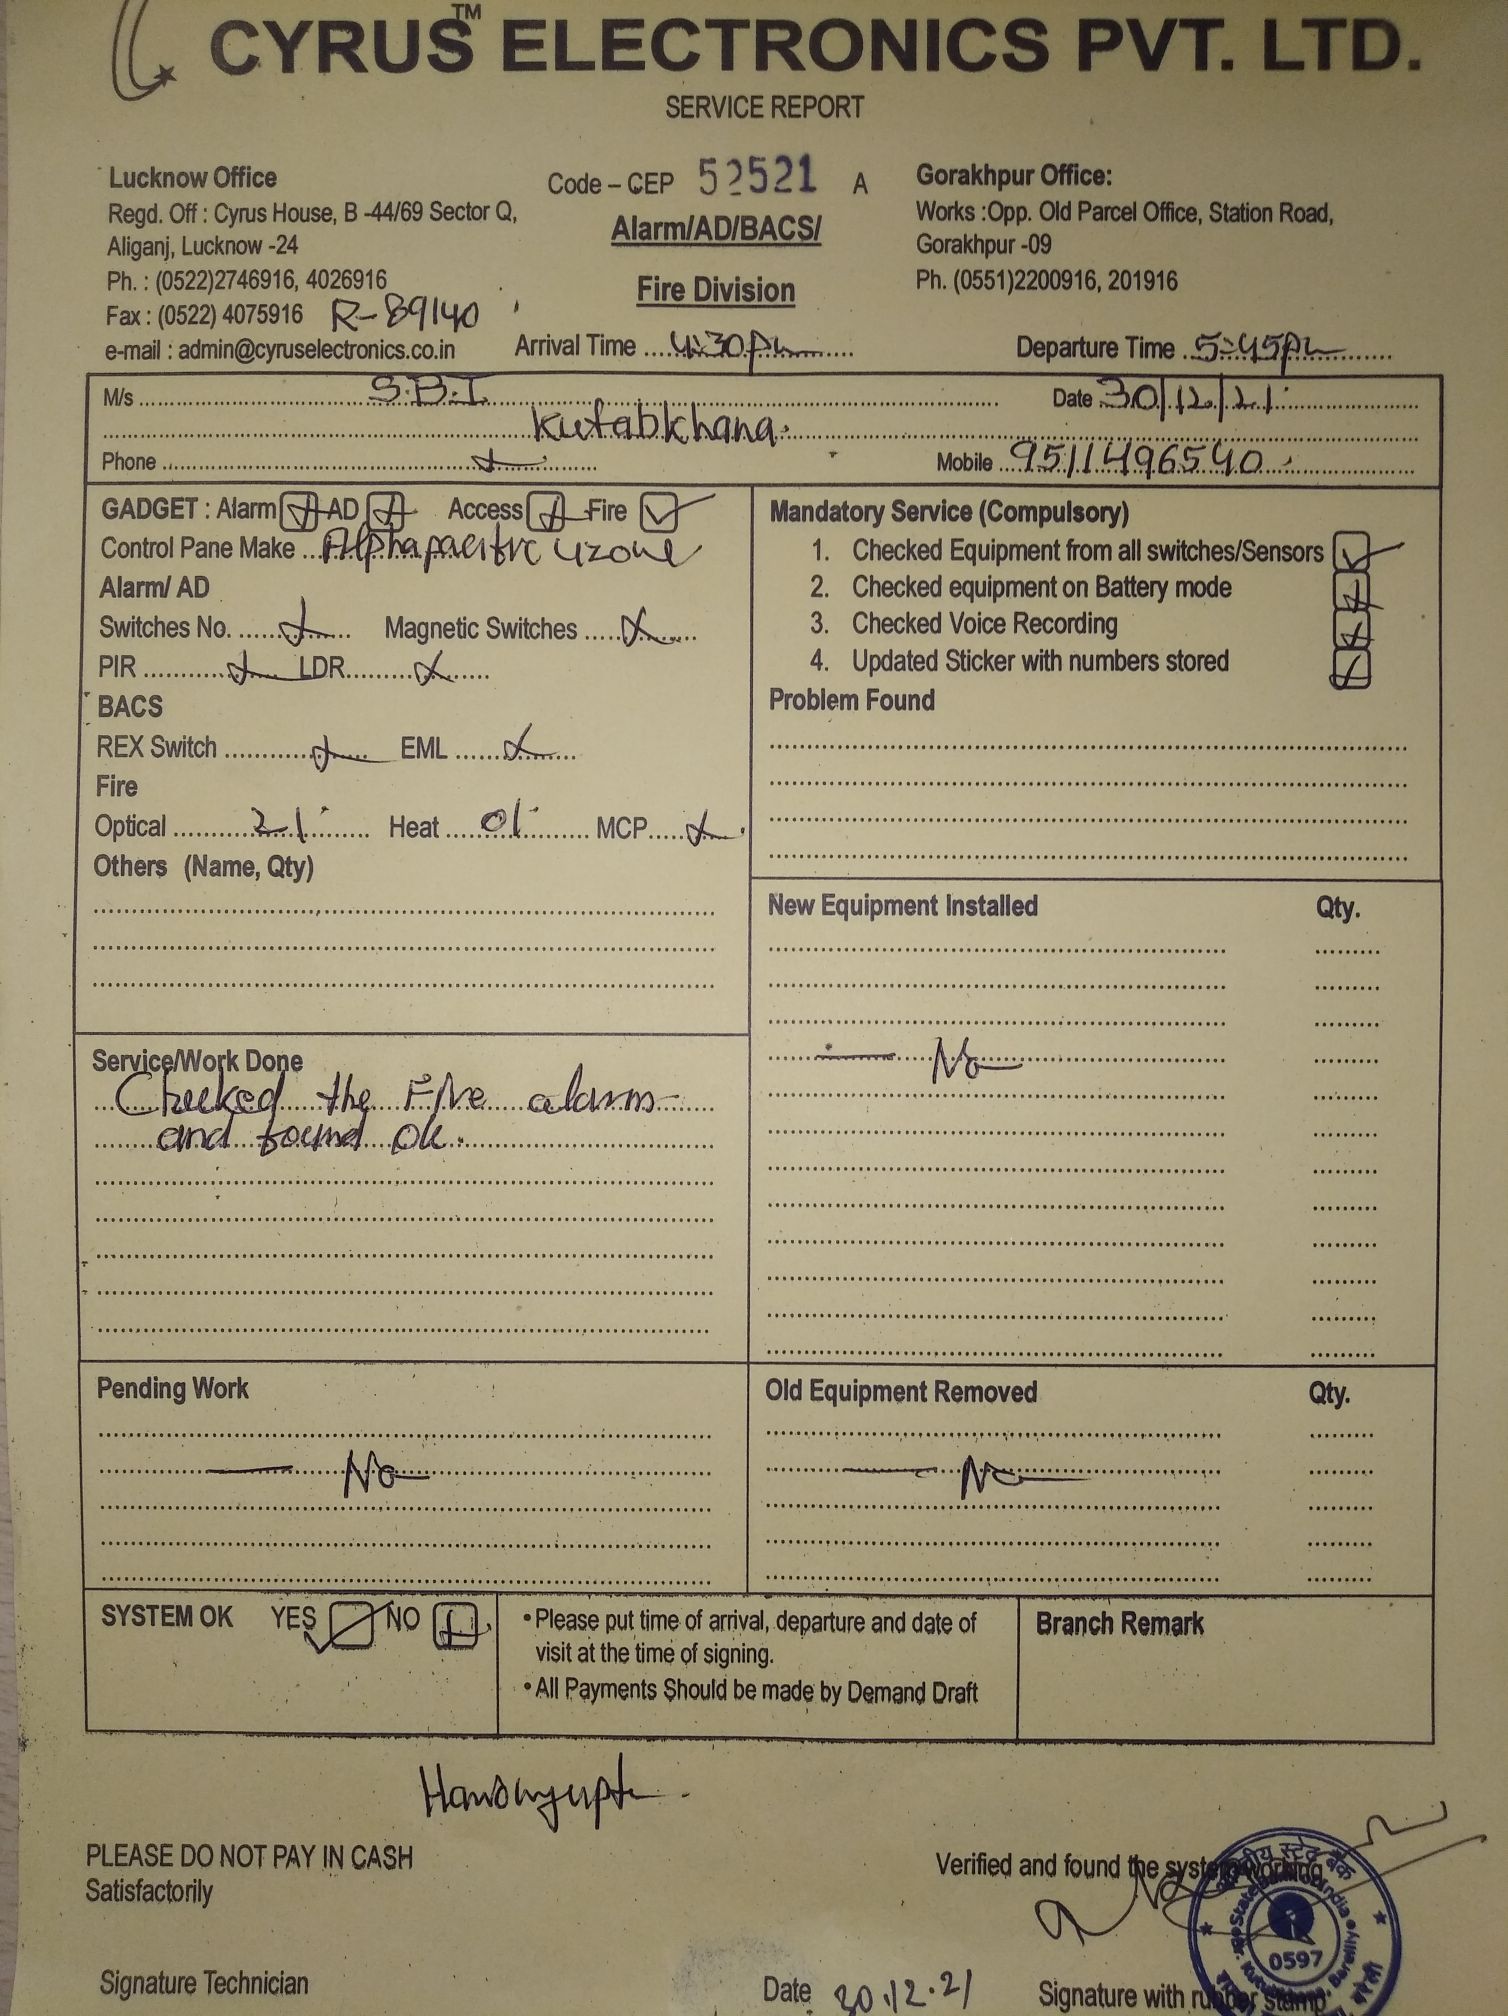 CYRUS™ ELECTRONICS PVT. LTD.
SERVICE REPORT
Lucknow Office
Regd. Off : Cyrus House, B -44/69 Sector Q,
Aliganj, Lucknow -24
Ph. : (0522)2746916, 4026916
Fax : (0522) 4075916 R-89140
e-mail : admin@cyruselectronics.co.in
Code – CEP 52521 A
Alarm/AD/BACS/
Fire Division
Gorakhpur Office:
Works :Opp. Old Parcel Office, Station Road,
Gorakhpur -09
Ph. (0551)2200916, 201916
Arrival Time 4:30pm Departure Time 5:45pm
M/s S.B.I Date 30/12/21
Kutabkhana
Phone Mobile 9511496540
GADGET : Alarm AD Access Fire
Control Pane Make Alphapacific 4zone
Alarm/ AD
Switches No. Magnetic Switches
PIR LDR
BACS
REX Switch EML
Fire
Optical 21 Heat 01 MCP
Others (Name, Qty)
Mandatory Service (Compulsory)
1. Checked Equipment from all switches/Sensors
2. Checked equipment on Battery mode
3. Checked Voice Recording
4. Updated Sticker with numbers stored
Problem Found
New Equipment Installed Qty.
No
Service/Work Done
Checked the Fire alarm
and found ok.
Pending Work
No
Old Equipment Removed Qty.
No
SYSTEM OK YES NO
• Please put time of arrival, departure and date of
visit at the time of signing.
• All Payments Should be made by Demand Draft
Branch Remark
PLEASE DO NOT PAY IN CASH
Satisfactorily
Verified and found the system working
भारतीय स्टेट बैंक
State Bank of India
0597
Bareilly
Signature Technician
Date 30.12.21
Signature with rubber stamp